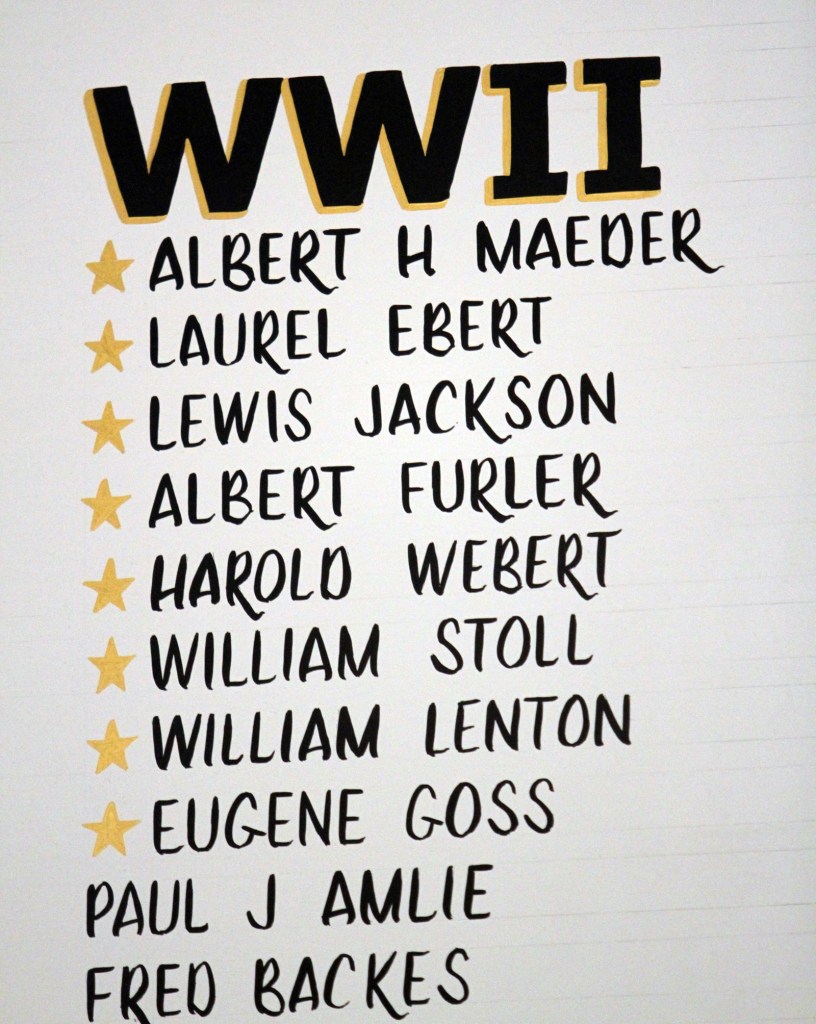 WWII
ALBERT H MAEDER
LAUREL EBERT
LEWIS JACKSON
ALBERT FURLER
HAROLD WEBERT
WILLIAM STOLL
WILLIAM LENTON
EUGENE GOSS
PAUL J AMLIE
FRED BACKES